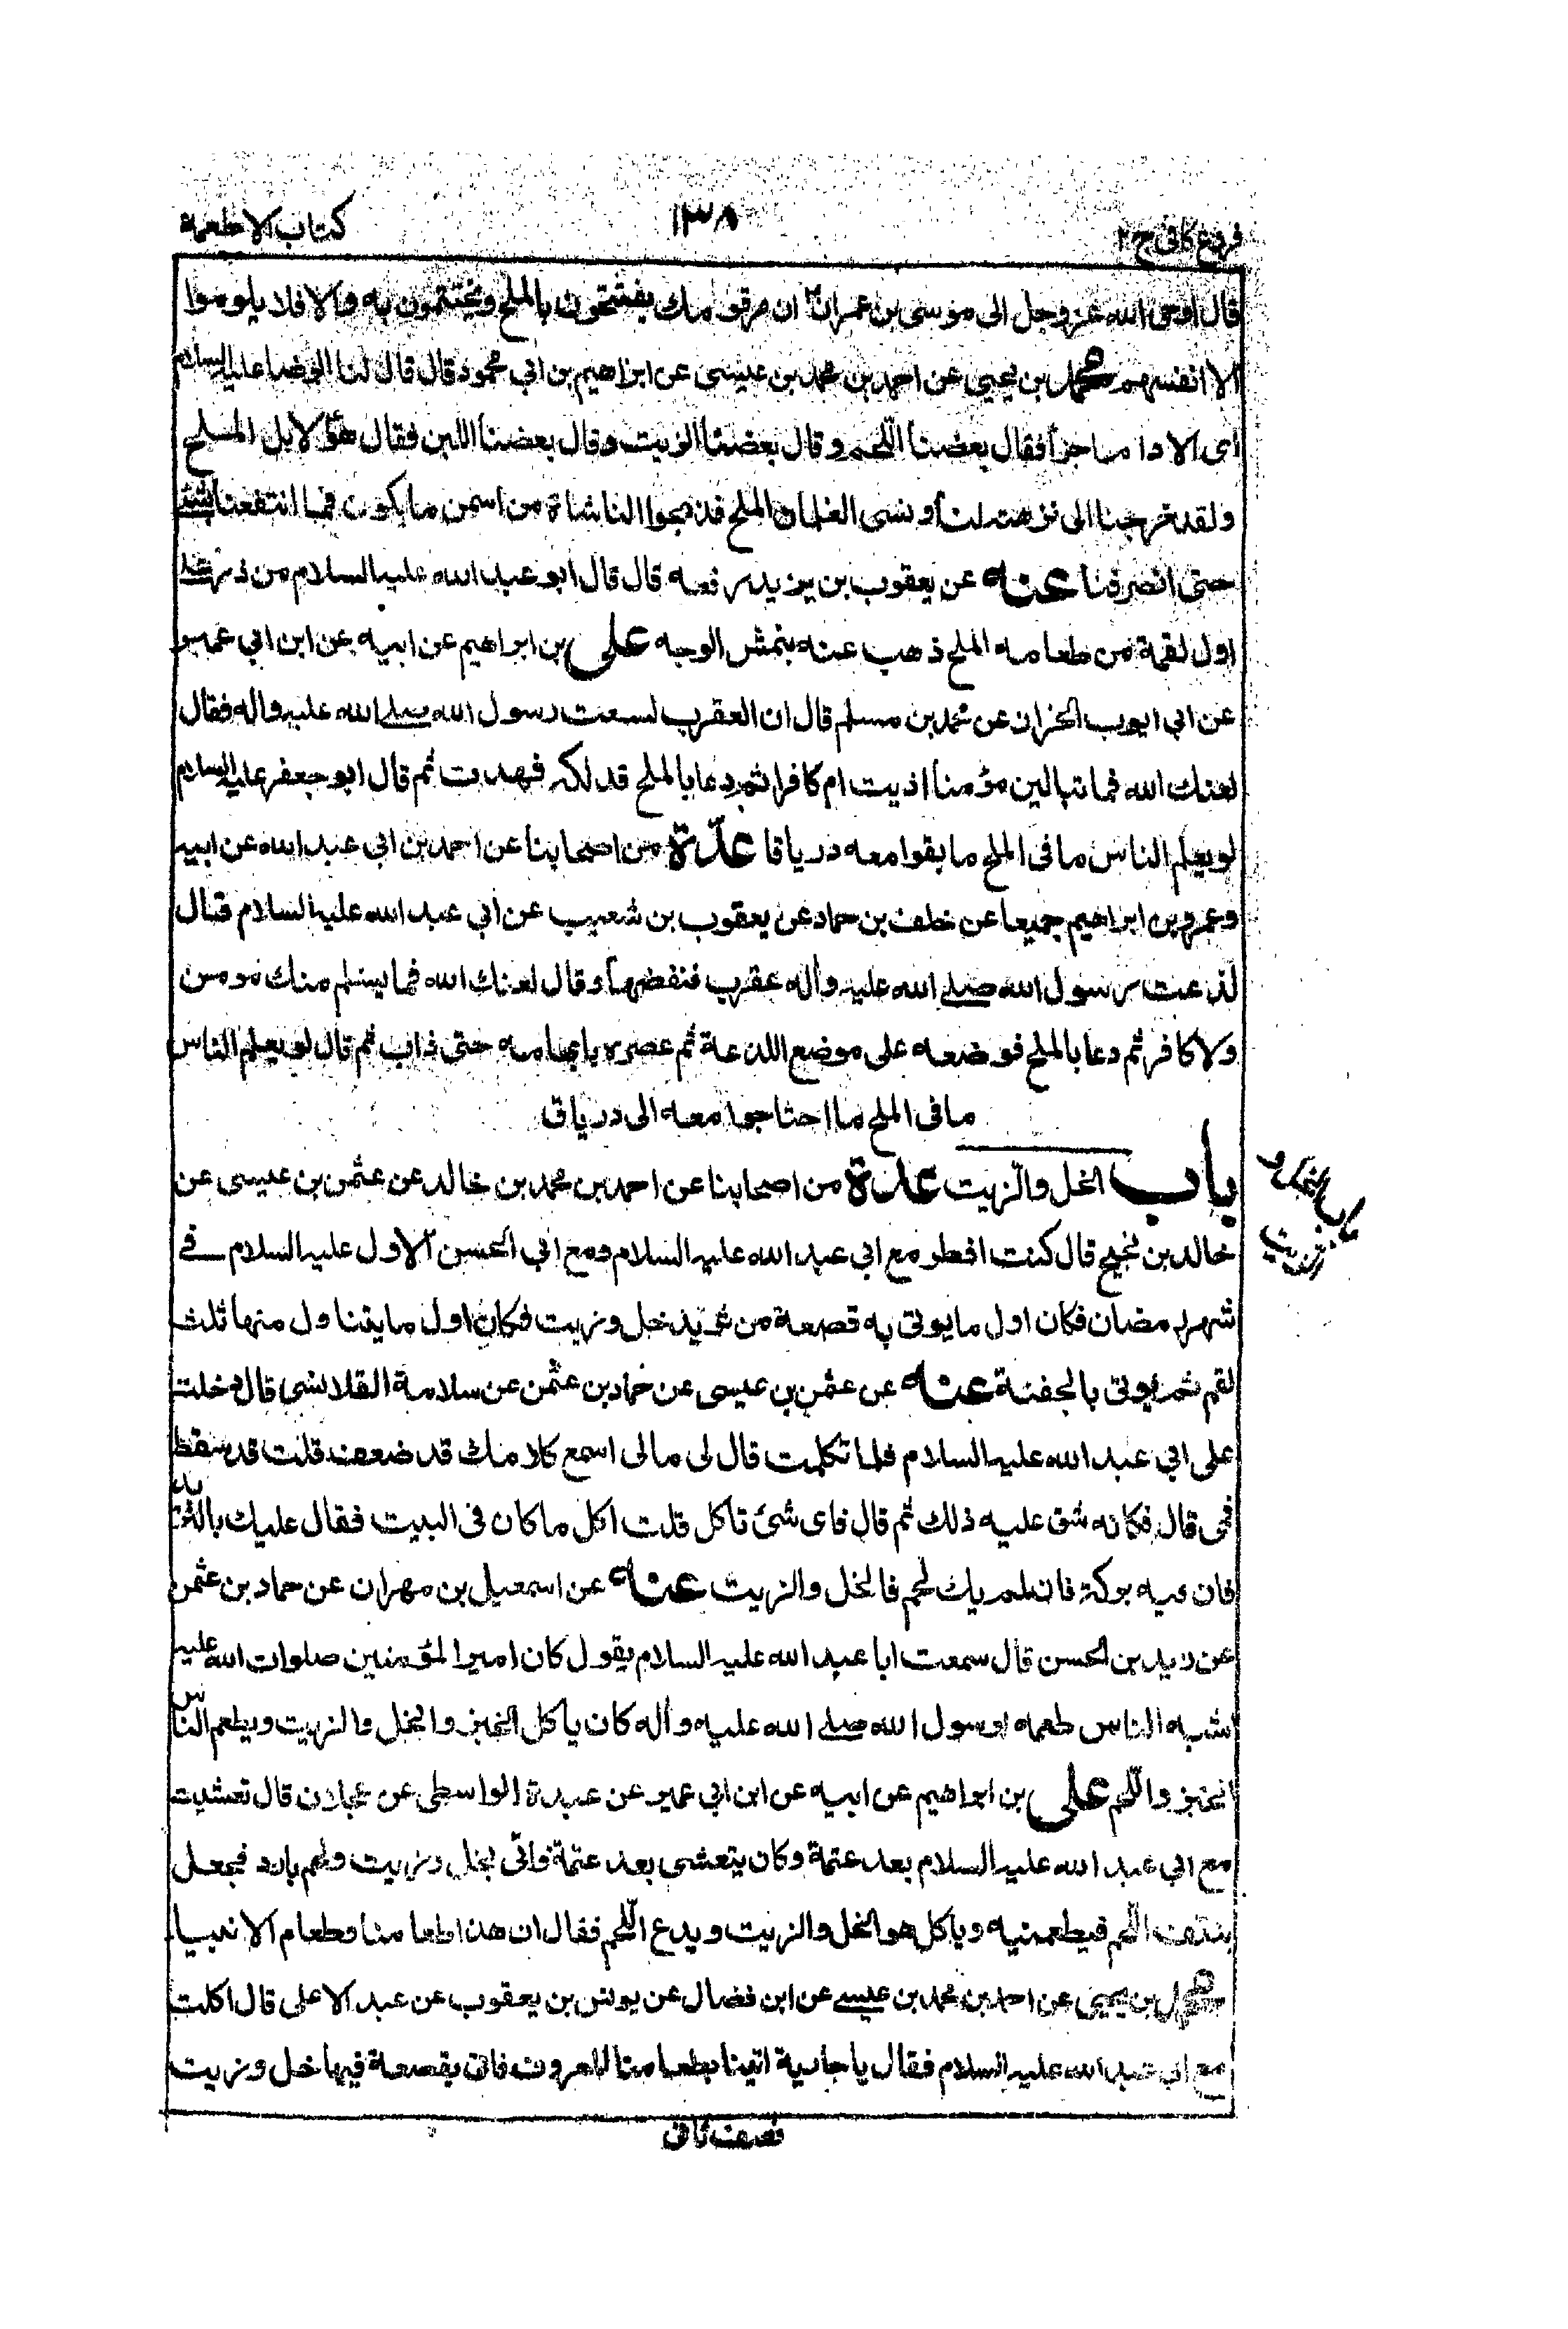 فروع كافى ج ٢
١٣٨
كتاب الاطعمة
قال اوحى الله عز وجل الى موسى بن عمران ان مر قومك يفتتحون بالملح ويختتمون به والا فلا يلوموا
الا انفسهم محمد بن يحيى عن احمد بن محمد بن عيسى عن ابراهيم بن ابي محمود قال قال لنا الرضا عليه السلام
اى الادام اجزأ فقال بعضنا اللحم وقال بعضنا الزيت وقال بعضنا اللبن فقال هو لا بل الملح
ولقد خرجنا الى نزهة لنا ونسى الغلمان الملح فذبحوا لنا شاة من اسمن ما يكون فما انتفعنا بشئ
حتى انصرفنا عنه عن يعقوب بن يزيد رفعه قال قال ابو عبد الله عليه السلام من ذر على
اول لقمة من طعامه الملح ذهب عنه بنمش الوجه على بن ابراهيم عن ابيه عن ابن ابي عمير
عن ابي ايوب الخزاز عن محمد بن مسلم قال ان العقرب لسعت رسول الله صلى الله عليه واله فقال
لعنك الله فما تبالين مؤمنا اذيت ام كافرا ثم دعا بالملح فدلكه فهدت ثم قال ابو جعفر عليه السلام
لو يعلم الناس ما فى الملح ما بغوا معه درياقا عدة من اصحابنا عن احمد بن ابي عبد الله عن ابيه
وعمرو بن ابراهيم جميعا عن خلف بن حماد عن يعقوب بن شعيب عن ابي عبد الله عليه السلام قال
لدغت رسول الله صلى الله عليه وآله عقرب فنفضها وقال لعنك الله فما يسلم منك مومن
ولا كافر ثم دعا بالملح فوضعه على موضع اللدغة ثم عصره بابهامه حتى ذاب ثم قال لو يعلم الناس
ما فى الملح ما احتاجوا معه الى درياق
باب الخل والزيت عدة من اصحابنا عن احمد بن محمد بن خالد عن عثمن بن عيسى عن
خالد بن نجيح قال كنت افطر مع ابي عبد الله عليه السلام ومع ابي الحسن الاول عليه السلام فى
شهر رمضان فكان اول ما يوتى به قصعة من ثريد خل وزيت فكان اول ما يتناول منها ثلث
لقم ثم يوتى بالجفنة عنه عن عثمن بن عيسى عن حماد بن عثمن عن سلامة القلانسى قال دخلت
على ابي عبد الله عليه السلام فلما تكلمت قال لى مالى اسمع كلامك قد ضعف قلت قد سقط
فمى قال فكانه شق عليه ذلك ثم قال فاى شئ تاكل قلت اكل ما كان فى البيت فقال عليك بالثريد
فان فيه بركة فان لم يك لحم فالخل والزيت عنه عن اسمعيل بن مهران عن حماد بن عثمن
عن زيد بن الحسن قال سمعت ابا عبد الله عليه السلام يقول كان امير المؤمنين صلوات الله عليه
اشبه الناس طعمه برسول الله صلى الله عليه وآله كان ياكل الخبز والخل والزيت ويطعم الناس
الخبز واللحم على بن ابراهيم عن ابيه عن ابن ابي عمير عن عبدة الواسطى عن عجلان قال تعشيت
مع ابي عبد الله عليه السلام بعد عتمة وكان يتعشى بعد عتمة فاتى بخل وزيت ولحم بارد فجعل
ينتف اللحم فيطعمنيه وياكل هو الخل والزيت ويدع اللحم فقال ان هذا طعامنا وطعام الانبيا
محمد بن يحيى عن احمد بن محمد بن عيسى عن ابن فضال عن يونس بن يعقوب عن عبد الاعلى قال اكلت
مع ابي عبد الله عليه السلام فقال يا جارية اتينا بطعامنا المعروف فاتى بقصعة فيها خل وزيت
نصف ثانى